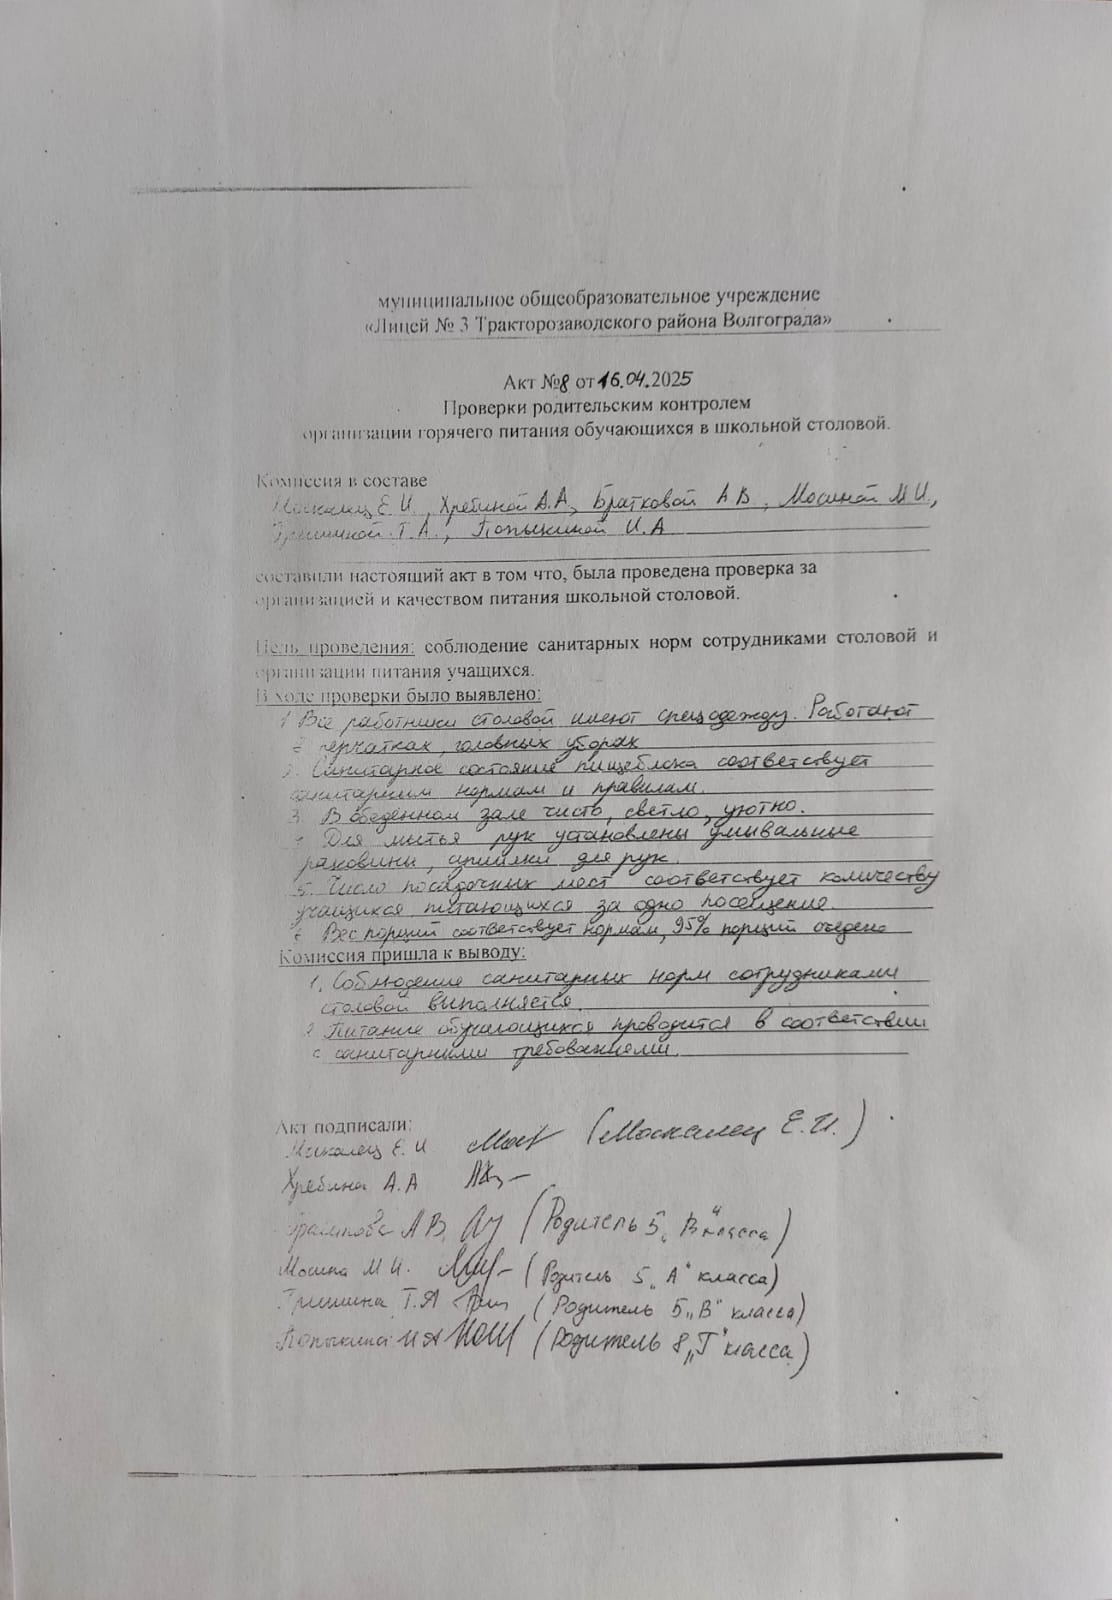 муниципальное общеобразовательное учреждение
«Лицей № 3 Тракторозаводского района Волгограда»
Акт №8 от 16.04.2025
Проверки родительским контролем
организации горячего питания обучающихся в школьной столовой.
Комиссия в составе
Москалец Е.И., Хребиной А.А., Братковой А.В., Мосиной М.И.,
Гришиной Т.А., Попыкиной И.А
составили настоящий акт в том что, была проведена проверка за
организацией и качеством питания школьной столовой.
Цель проведения: соблюдение санитарных норм сотрудниками столовой и
организации питания учащихся.
В ходе проверки было выявлено:
1 Все работники столовой имеют спецодежду. Работают
в перчатках, головных уборах
2. Санитарное состояние пищеблока соответствует
санитарным нормам и правилам.
3. В обеденном зале чисто, светло, уютно.
4 Для мытья рук установлены умывальные
раковины, сушилки для рук.
5. Число посадочных мест соответствует количеству
учащихся, питающихся за одно посещение.
6 Вес порций соответствует нормам, 95% порций съедено
Комиссия пришла к выводу:
1. Соблюдение санитарных норм сотрудниками
столовой выполняется.
2 Питание обучающихся проводится в соответствии
с санитарными требованиями.
Акт подписали:
Москалец Е. И (Москалец Е.И.)
Хребина А.А
Браткова А В. (Родитель 5 „В" класса)
Мосина М И. (Родитель 5 „А" класса)
Гришина Т.А (Родитель 5 „В" класса)
Попыкина И А (Родитель 8 „Г" класса)